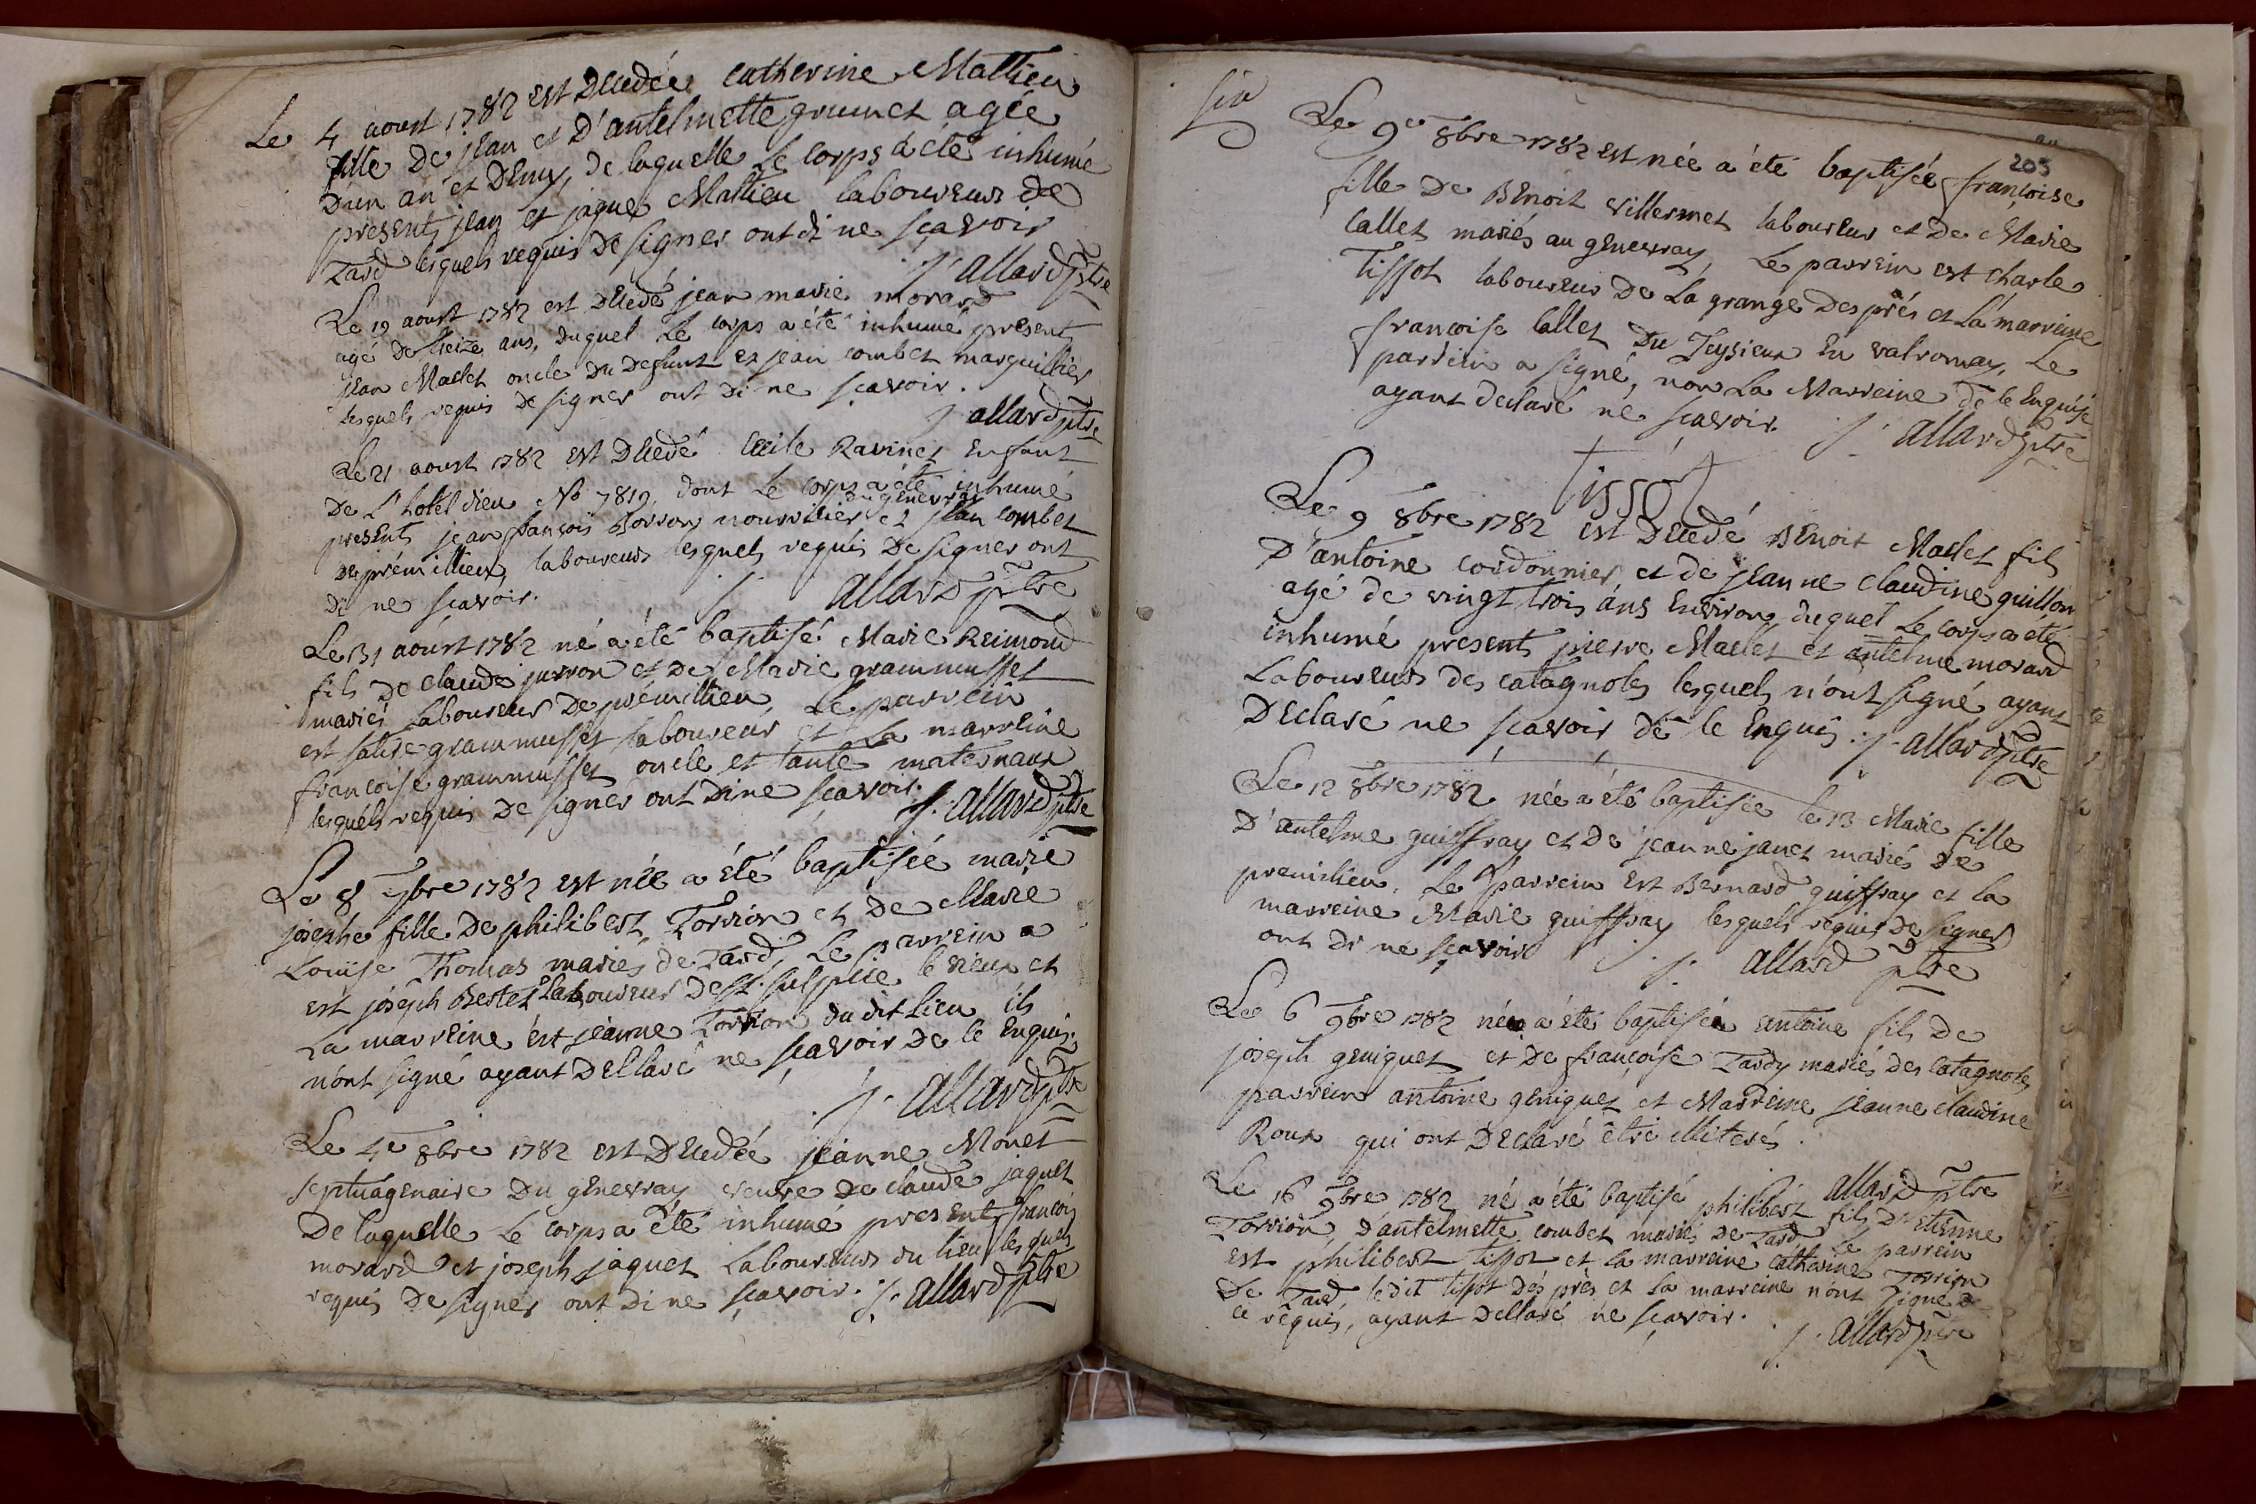 Le 4 aoust 1782 est Decedée catherine Mathieu
fille De jean et D'antelmette grumet agée
D'un an et Demy, de laquelle Le corps a été inhumé
présents jean et jaque Mathieu laboureurs de
Tard lesquels requis De signer ont di ne sçavoir
j. allard ptre
Le 19 aoust 1782 est Decedé jean marie morard
agé De treize ans, duquel Le corps a été inhumé present
jean Maclet oncle Du Defunt et jean combet marguillier
lesquels requis De signer ont Di ne sçavoir.
j allard ptre
Le 21 aoust 1782 est Decedé Cecile Ravinet Enfant
De L'hotel Dieu No 7819, dont Le corps a été inhumé
du genevray
presents jean françois Borron nourricier et jean combet
de prémillieu, laboureurs lesquels requis De signer ont
Di ne sçavoir. j. allard ptre
Le 31 aoust 1782 né a été baptisé Marie Reimond
fils De claude jurron et De Marie grammusset
mariés Laboureur De prémillieu, Le parrein
est grammusset laboureur et La marreine
françoise grammusset oncle et tante maternaux
lesquels requis De signer ont Di ne sçavoir.
j. allard ptre
Le 8 7bre 1782 est née a été baptisée marie
josephe fille De philibert Torrion et De Marie
Louïse Thomas mariés de Tard, Le parrein
est joseph Bertet Laboureur De St. sulpice le vieux et
La marreine est jeanne Torrion du dit Lieu ils
n'ont signé ayant Declaré ne sçavoir De ce Enquis.
j. allard ptre
Le 4e 8bre 1782 est Decedée jeanne Monet
septuagenaire Du genevray veuve de claude jaquet
De laquelle Le corps a été inhumé presents françois
morard et joseph jaquet Laboureurs du lieu lesquels
requis De signer ont Di ne sçavoir. j. allard ptre
six
205
Le 9e 8bre 1782 est née a été baptisée françoise
fille De Benoit villermet laboureur et De Marie
Callet mariés au genevray, Le parrein est charle
Tissot laboureur De La grange Des prés et La marreine
françoise Callet Du En valromay, Le
parrein a signé, non La Marreine de ce Enquise
ayant declaré ne sçavoir. j. allard ptre
Tissot
Le 9 8bre 1782 est Decedé Benoit Maclet fils
D'antoine cordonnier, et de jeanne claudine guillon
agé de vingt trois ans Environ duquel Le corps a été
inhumé presents pierre Maclet et antelme morard
Laboureurs des catagnoles lesquels n'ont signé ayant
Declaré ne sçavoir de ce Enquis. j. allard ptre
Le 12 8bre 1782 née a été baptisée le 13 Marie fille
D'antelme guiffray et De jeanne janet mariés De
premilieu. Le parrein est Bernard guiffray et la
marreine Marie guiffray lesquels requis De signer
ont Di ne sçavoir j. allard ptre
Le 6 9bre 1782 né a été baptisé antoine fils De
joseph geniguet et De françoise Tardy mariés des catagnoles
parrein antoine geniguet et Marreine jeanne claudine
Roux qui ont Declaré être illiterés.
allard ptre
Le 16 9bre 1782 né a été baptisé philibert fils D'etienne
Torrion, D'antelmette combet mariés De Tard Le parrein
est philibert Tissot et La marreine catherine Torrion
De Tard, le dit Tissot Des prés et La marreine n'ont signé de
ce requis, ayant Declaré ne sçavoir.
j. allard ptre